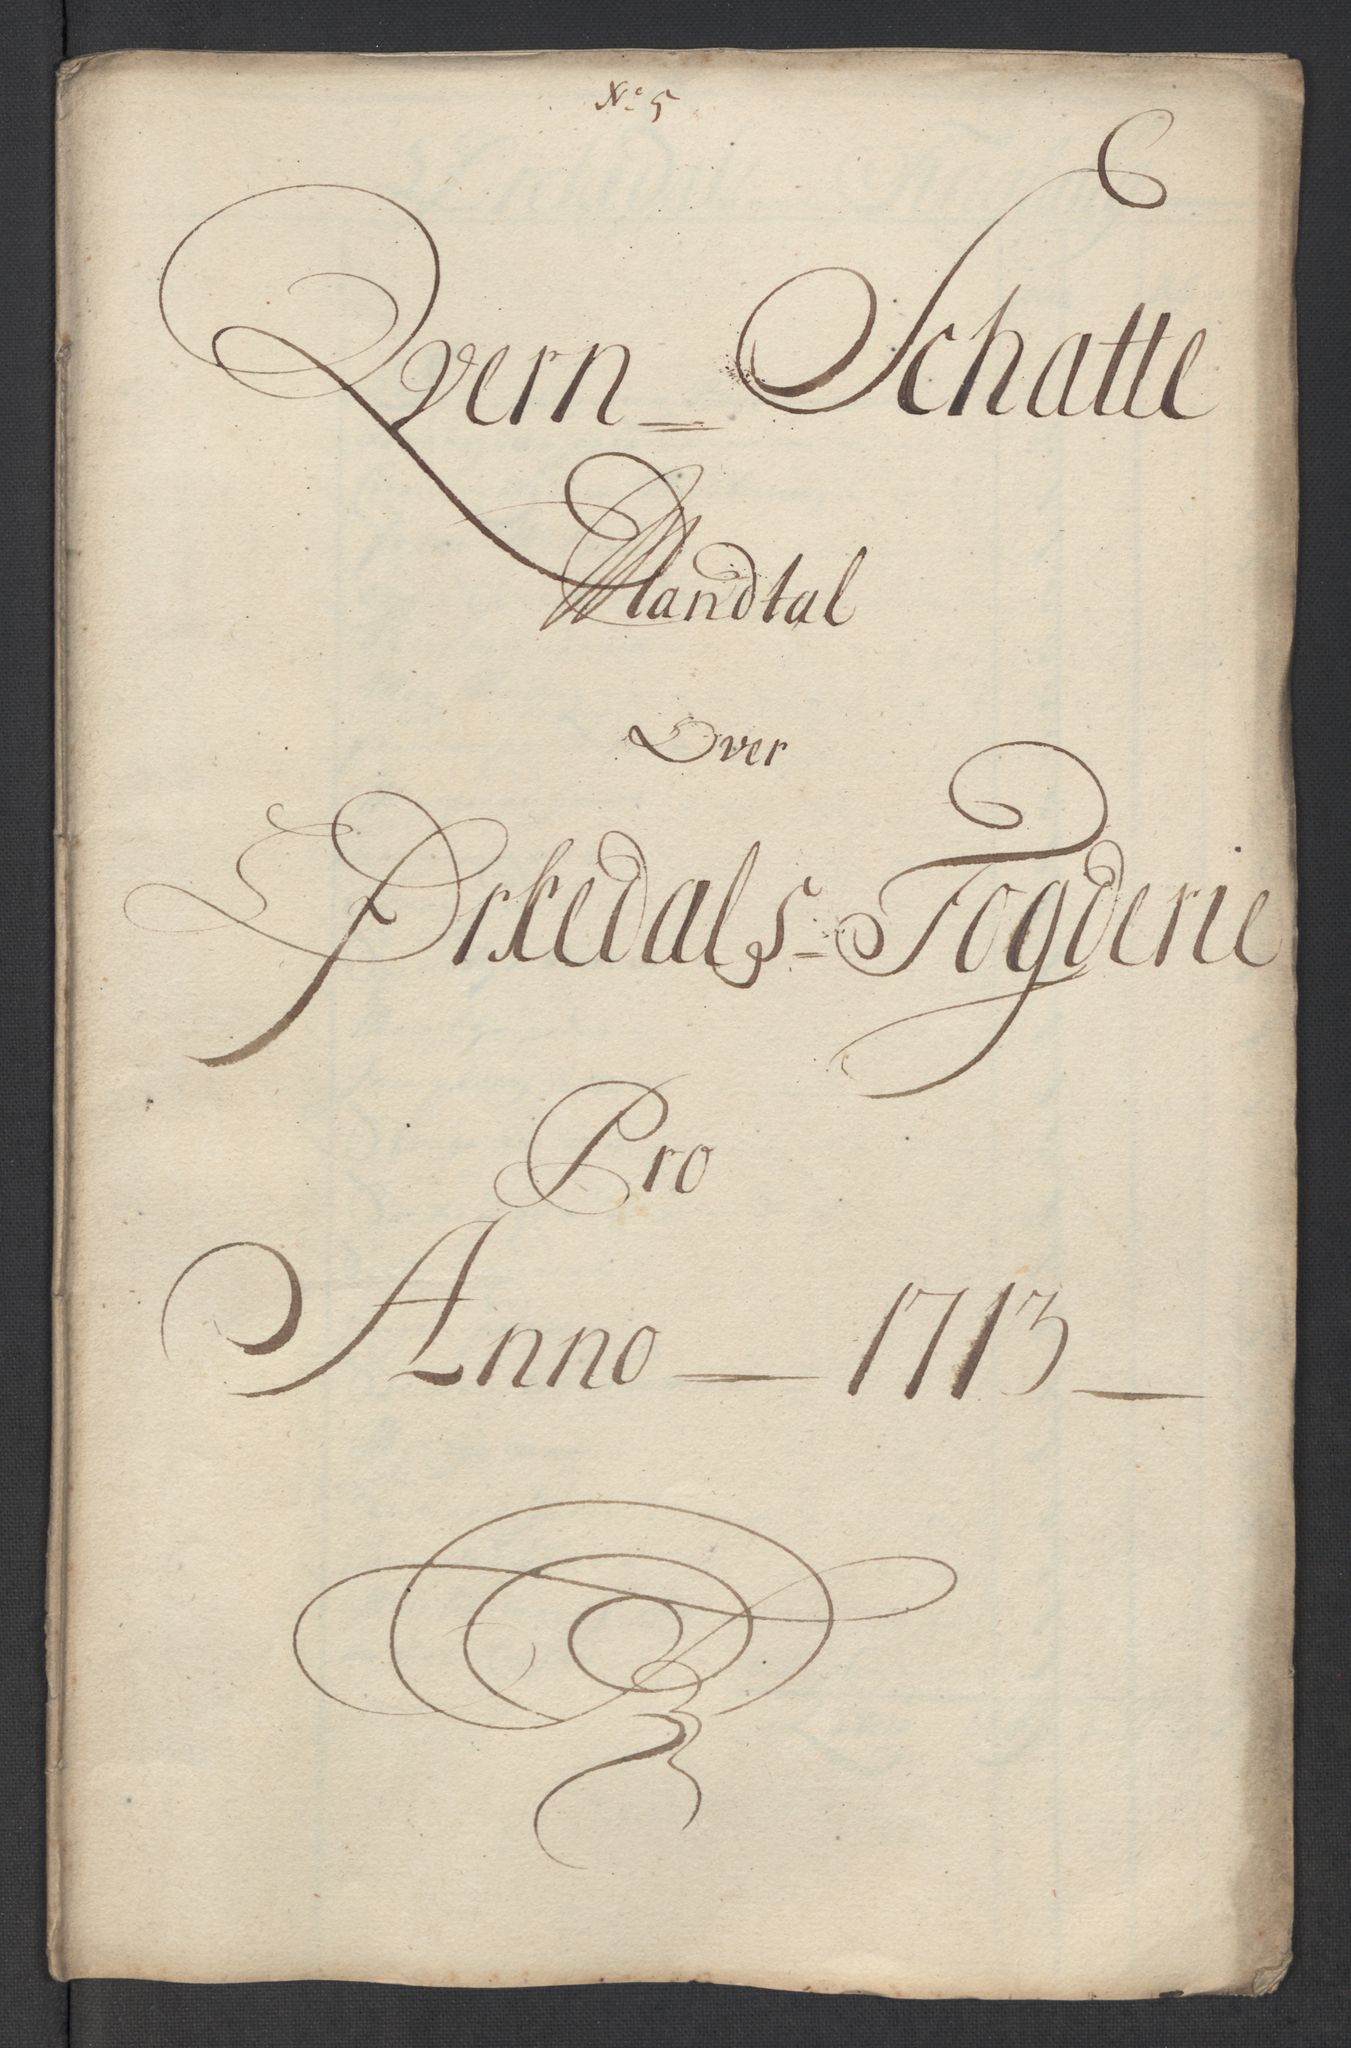 No 5
Qvern = Schatte
Mandtal
Over
Ørkedals = Fogderie
Pro
Anno — 1713 —